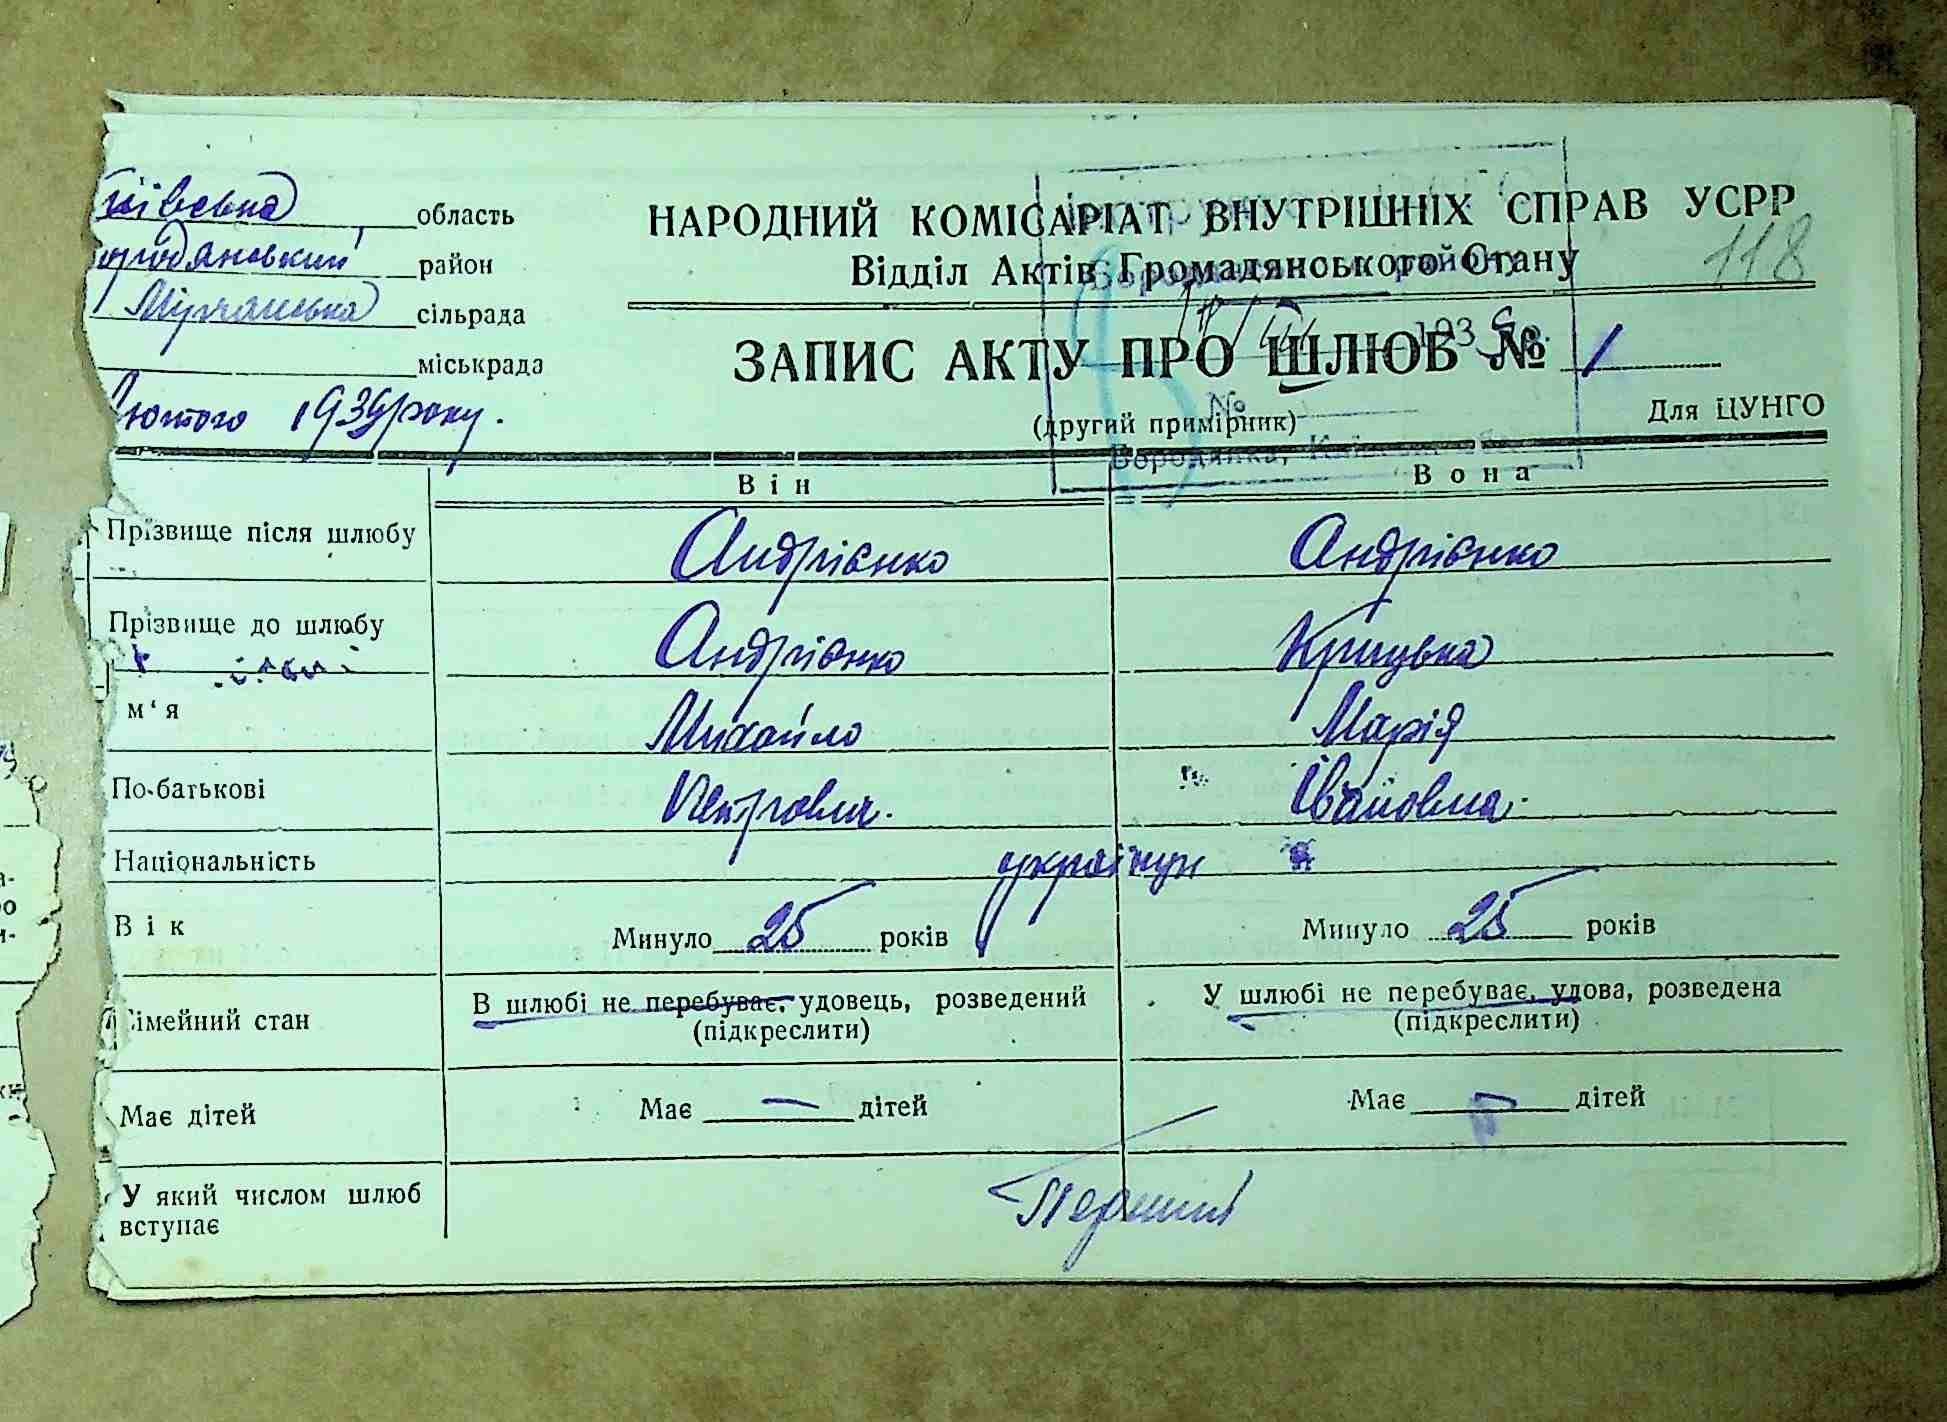 НАРОДНИЙ КОМІСАРІАТ ВНУТРІШНІХ СПРАВ УСРР
Відділ Актів Громадянського Стану
118
иївська область
ородяновский район
Мірчанська сільрада
міськрада
Лютого 1939 року.
ЗАПИС АКТУ ПРО ШЛЮБ № 1
(другий примірник)
Для ЦУНГО
193
№
Бородянка,
Він Вона
Прізвище після шлюбу Андрієнко Андрієнко
Прізвище до шлюбу Андрієнко Крицька
м‘я Михайло Марія
По-батькові Петрович. Івановна.
Національність українци
Вік Минуло 25 років Минуло 25 років
імейний стан В шлюбі не перебуває, удовець, розведений У шлюбі не перебуває, удова, розведена
(підкреслити) (підкреслити)
Має дітей Має — дітей Має — дітей
У який числом шлюб
вступає Первший